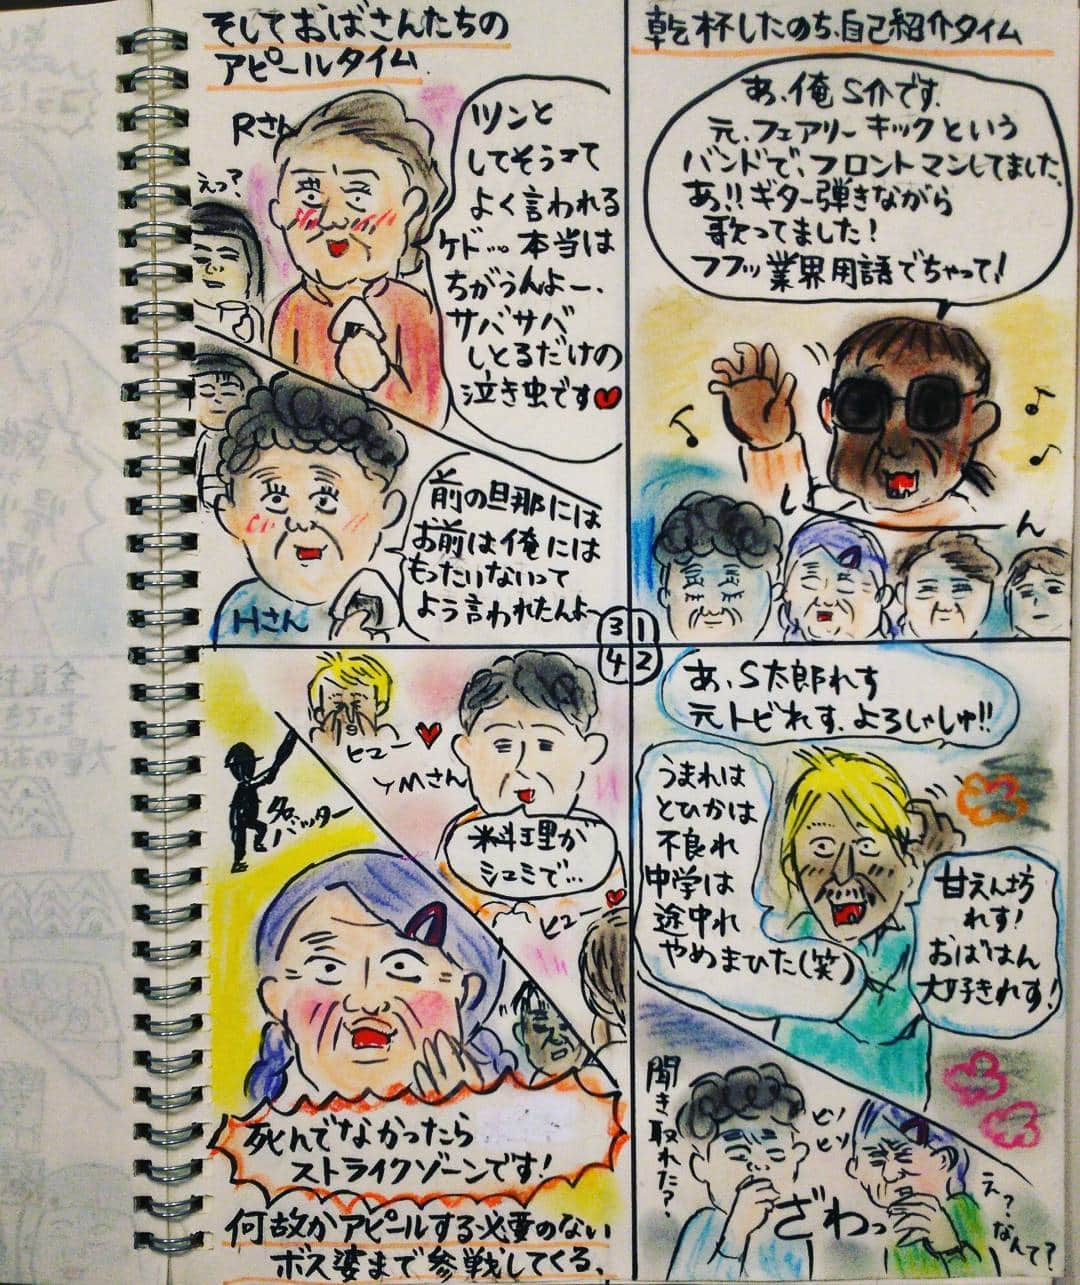 乾杯したのち、自己紹介タイム
あ、俺S介です。
元、フェアリーキックという
バンドで、フロントマンしてました。
あ!!ギター弾きながら
歌ってました!
フフッ業界用語でちゃって!
し
ん
1
あ、S太郎れす
元トビれす、よろしゃしゅ!!
うまれは
とひかは
不良れ
中学は
途中れ
やめまひた(笑)
甘えん坊
れす!
おばはん
大好きれす!
聞き取れた?
ヒソ
ヒソ
ざわっ
え?
なんて?
2
そしておばさんたちの
アピールタイム
Rさん
えっ?
ツンと
してそうって
よく言われる
ケド…本当は
ちがうんよー、
サバサバ
しとるだけの
泣き虫です♥
前の旦那には
お前は俺には
もったいないって
よう言われたんよ~
Hさん
3
4
ヒュー
Mさん
料理が
シュミで…
ヒュー
バッター
死んでなかったら
ストライクゾーンです!
何故かアピールする必要のない
ボス婆まで参戦してくる、